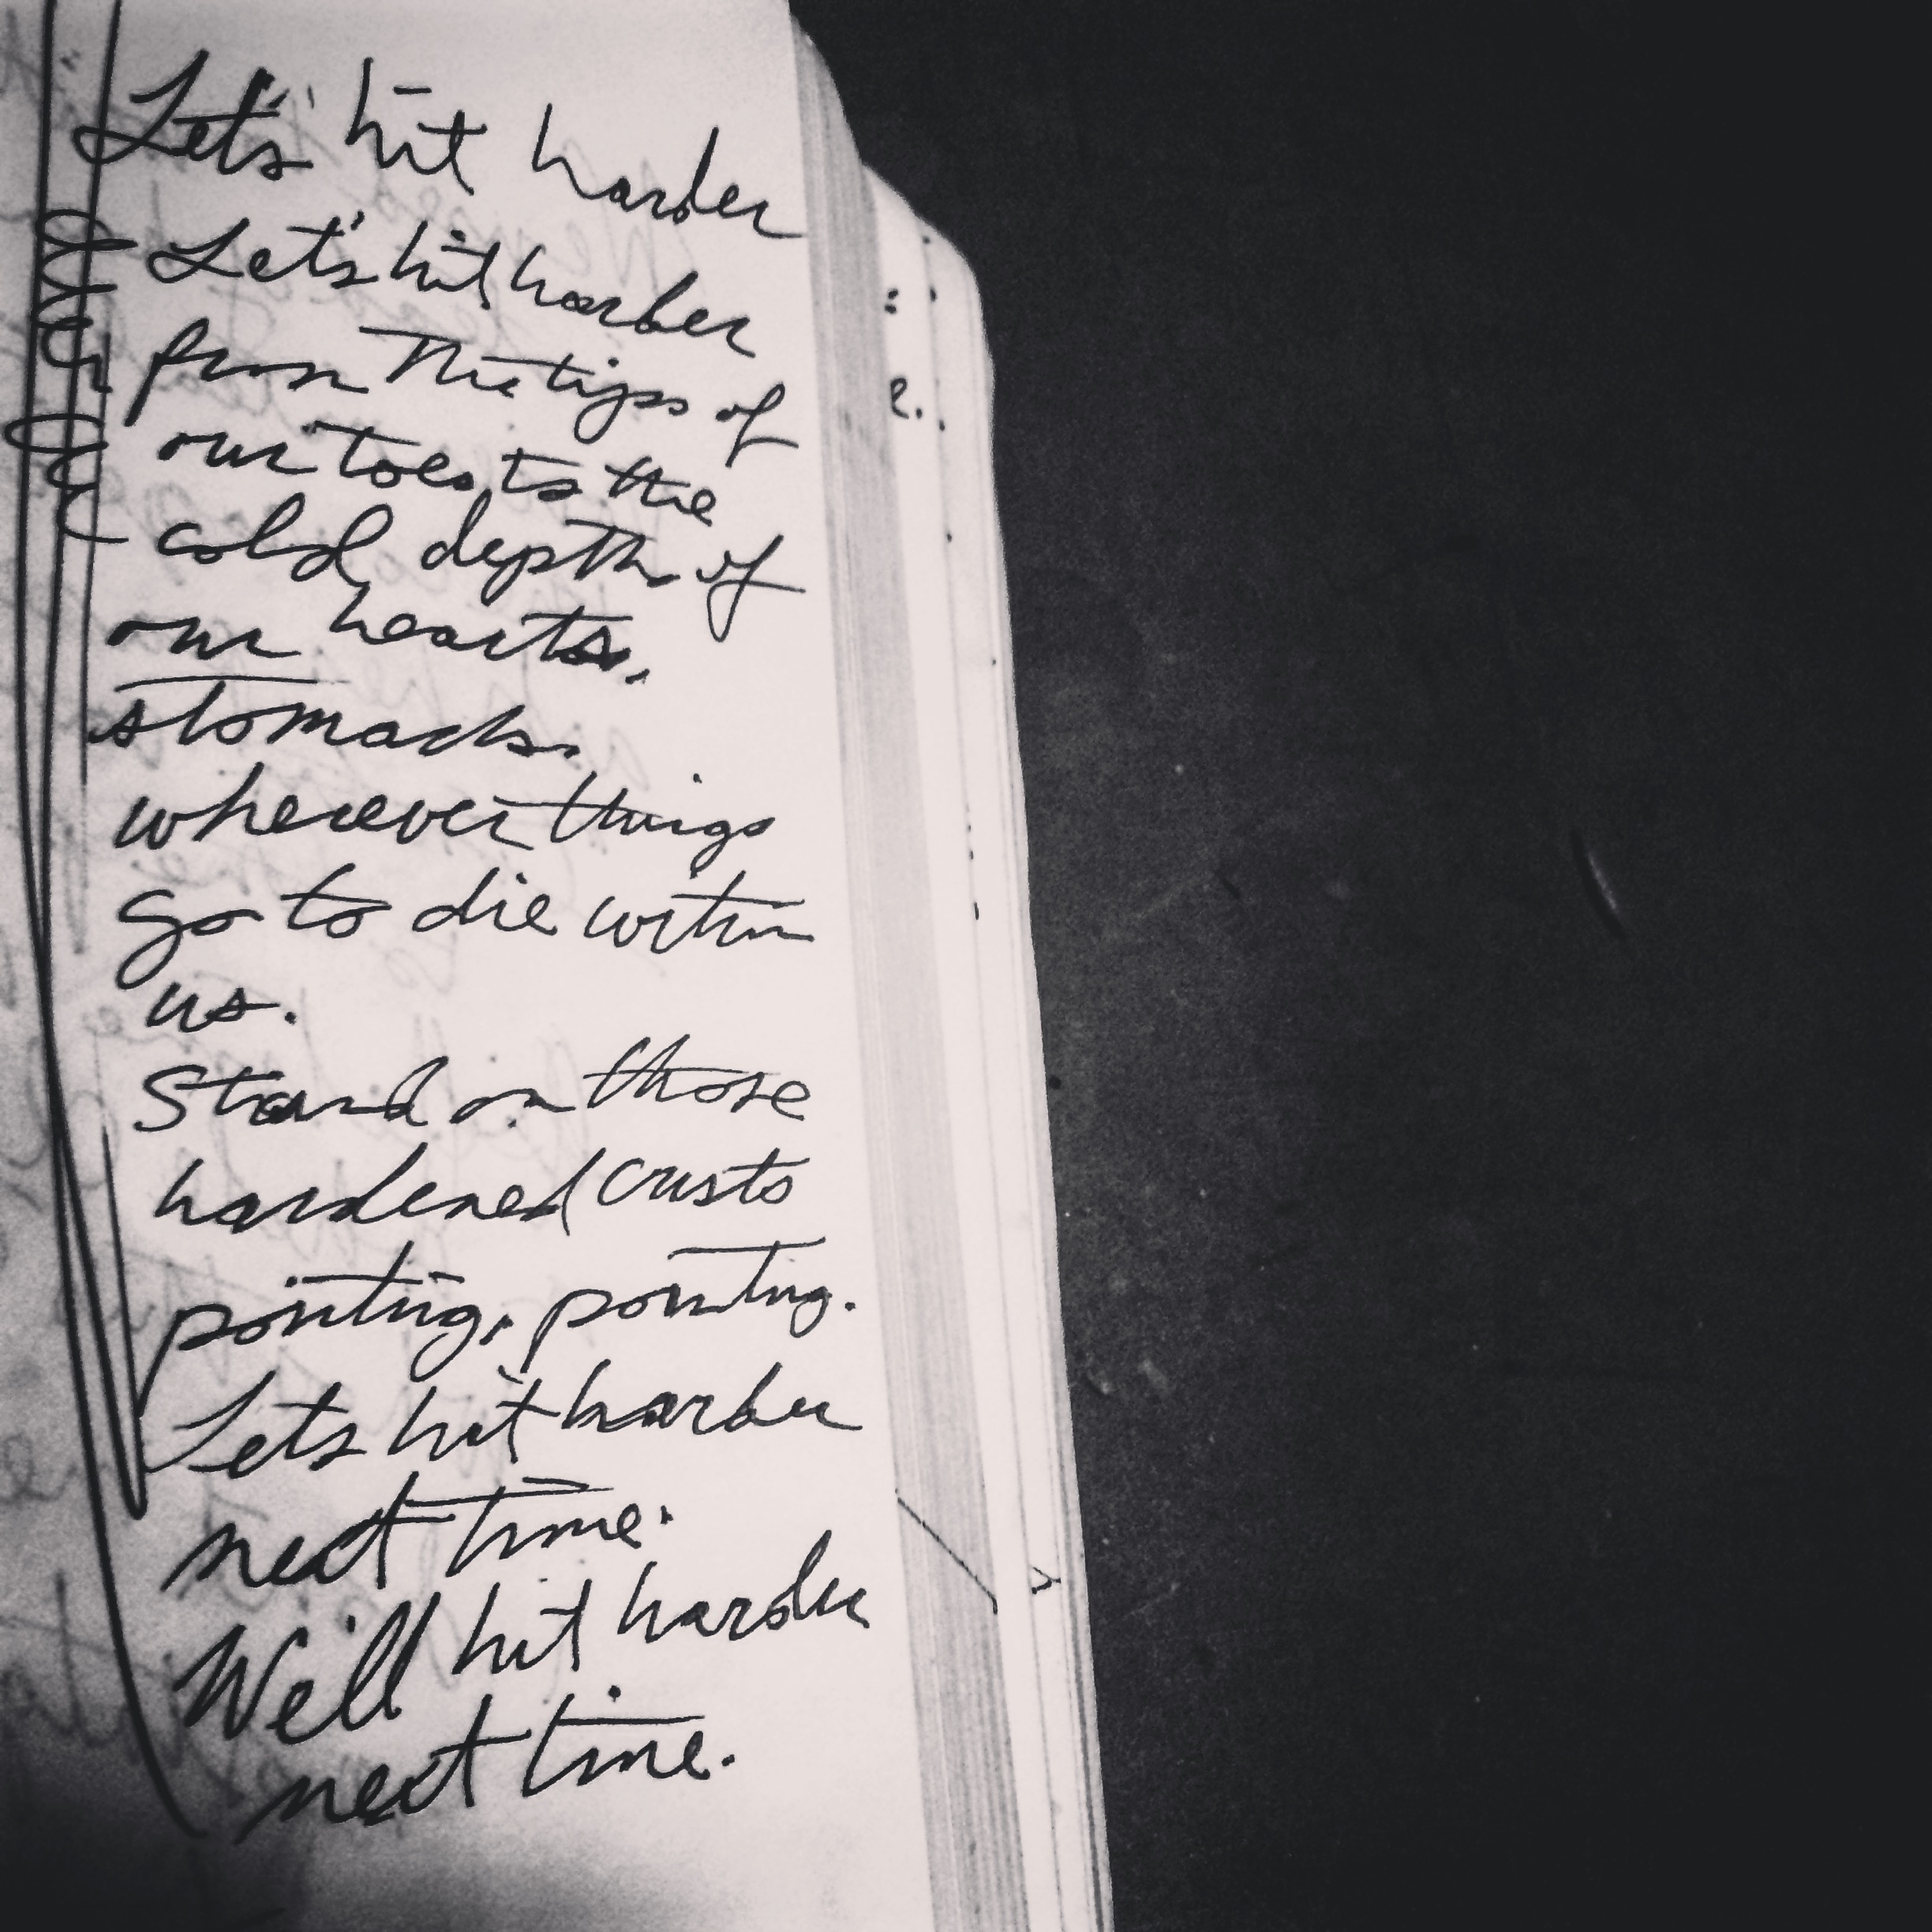 Let's hit harder
Let's hit harder
from the tips of
our toes, to the
cold, depths of
our hearts,
stomachs.
wherever things
go to die within
us.
Stand on those
hardened crusts
pointing, pointing.
Lets hit harder
next time.
We'll hit harder
next time.